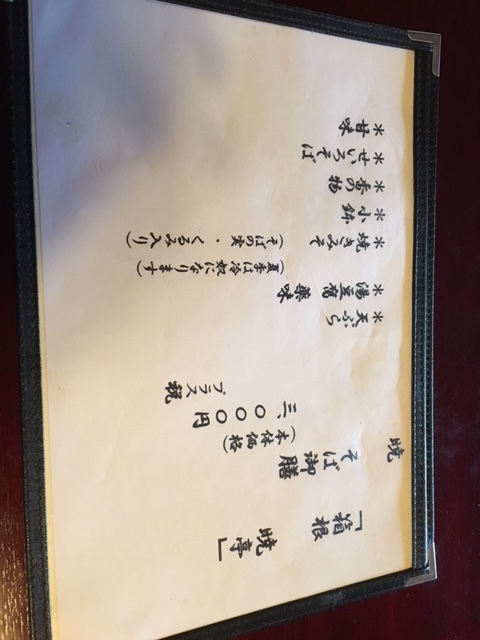 「箱根
暁亭」
暁
そば御膳
(本体価格)
三、〇〇〇円
プラス税
※天ぷら
※湯豆腐 薬味
(夏季は冷奴になります)
※焼きみそ
(そばの実・くるみ入り)
※小鉢
※香の物
※せいろそば
※甘味